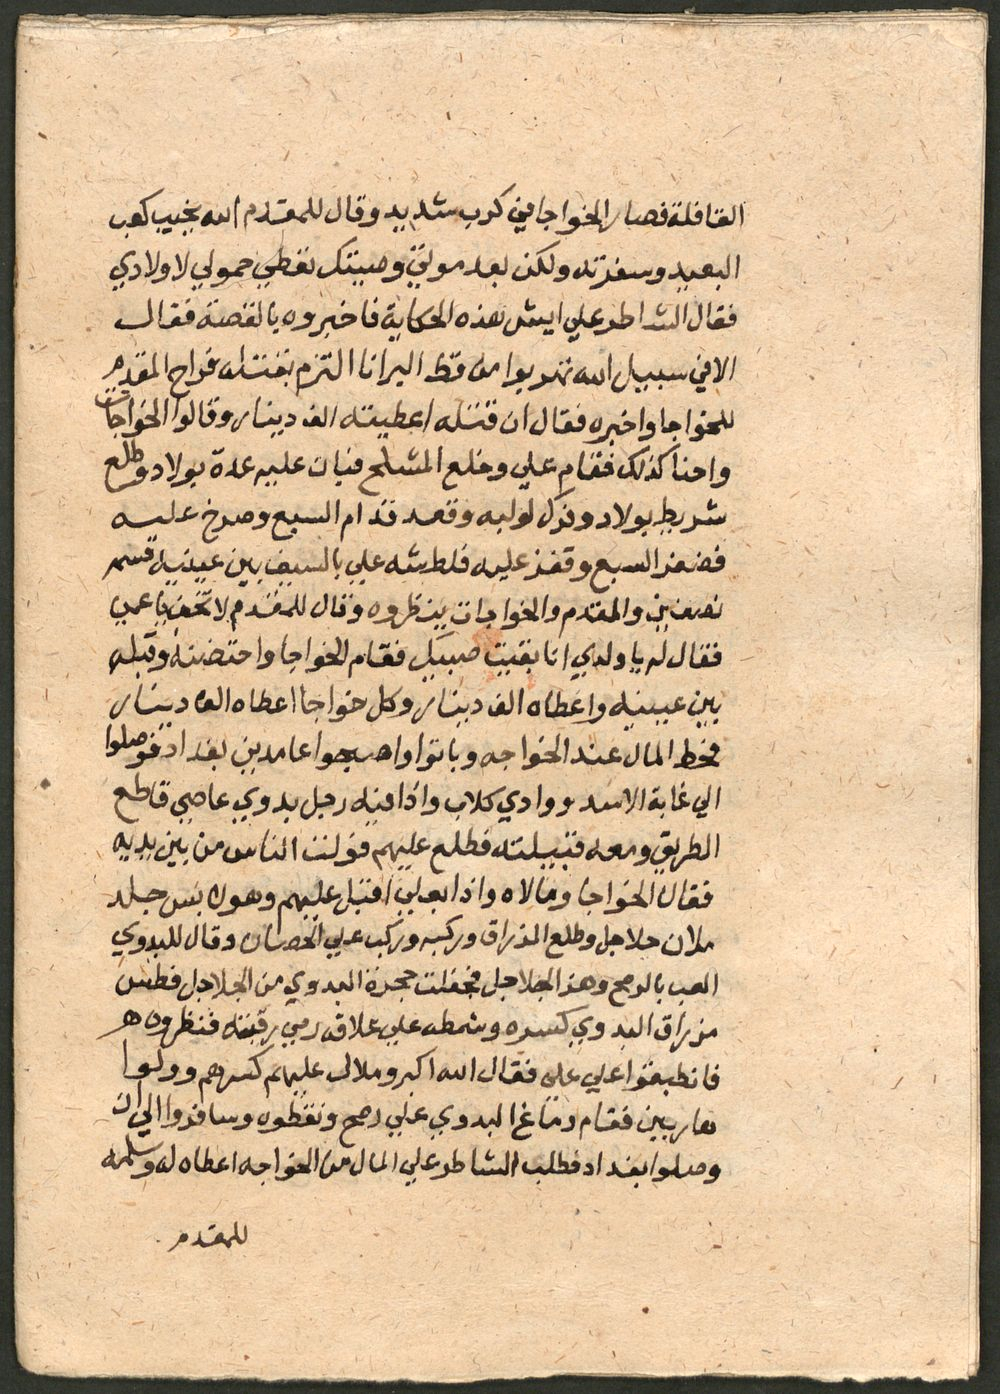 القافلة فصار الخواجا في كرب شديد وقال للمقدم الله يخيب كعب
البعيد وسفرته ولكن بعد موتي وصيتك تعطي حمولي لاولادي
فقال الشاطر علي ايش هذه الحكاية فاخبروه بالقصة فقال
الافي سبيل الله تهربوا من قط البر انا التزم بقتله فراح المقدم
للخواجا واخبره فقال ان قتله اعطيته الف دينار وقالوا الخواجات
واحنا كذلك فقام علي وخلع المشلح فبان عليه عدة بولاد وطلع
شريط بولاد وفرك لولبه وقعد قدام السبع وصرخ عليه
السبع وقفز عليه فلطشه علي بالسيف بين عينيه قسمه
نصفين والمقدم والخواجات ينظروه وقال للمقدم لا تخف يا عمي
فقال له يا ولدي انا بقيت صبيك فقام الخواجا واحتضنه وقبله
بين عينيه واعطاه الف دينار وكل خواجا اعطاه الف دينار
فحط المال عند الخواجه وباتوا واصبحوا عامدين بغداد فوصلوا
الي غابة الاسد ووادي كلاب واذا فيه رجل بدوي عاصي قاطع
الطريق ومعه قبيلته فطلع عليهم فولت الناس من بين يديه
فقال الخواجا ومالاه واذا بعلي اقبل عليهم وهو لابس جلد
ملان جلاجل وطلع المزراق وركبه وركب علي الحصان وقال للبدوي
العب بالرمح وهز الجلاجل فجفلت حجرة البدوي من الجلاجل فطبس
مزراق البدوي كسره وشمطه علي علاقه رمي رقبته فنظروه
فانطبقوا علي علي فقال الله اكبر ومال عليهم كسرهم وولوا
هاربين فقام دماغ البدوي علي رمح ونقطوه وسافروا الي ان
وصلوا بغداد فطلب الشاطر علي المال من الخواجه اعطاه له وسلمه
للمقدم